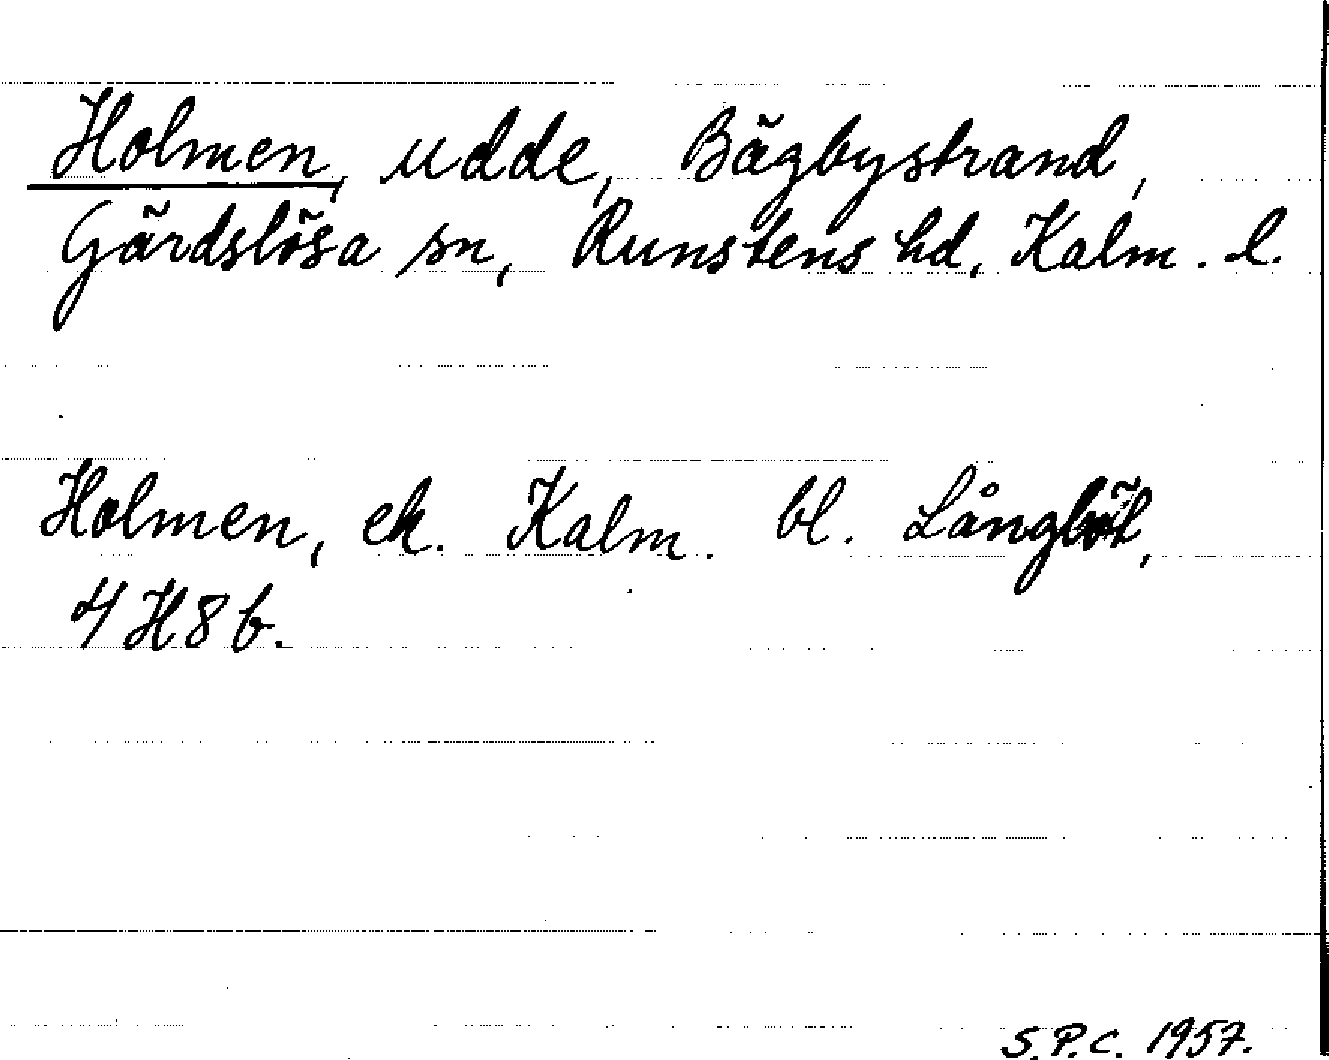 Holmen, udde, Bägbystrand,
Gärdslösa sn, Runstens hd, Kalm. l.
Holmen, ek. Kalm. bl. Långlöt,
4H8b.
S.P.C. 1957.